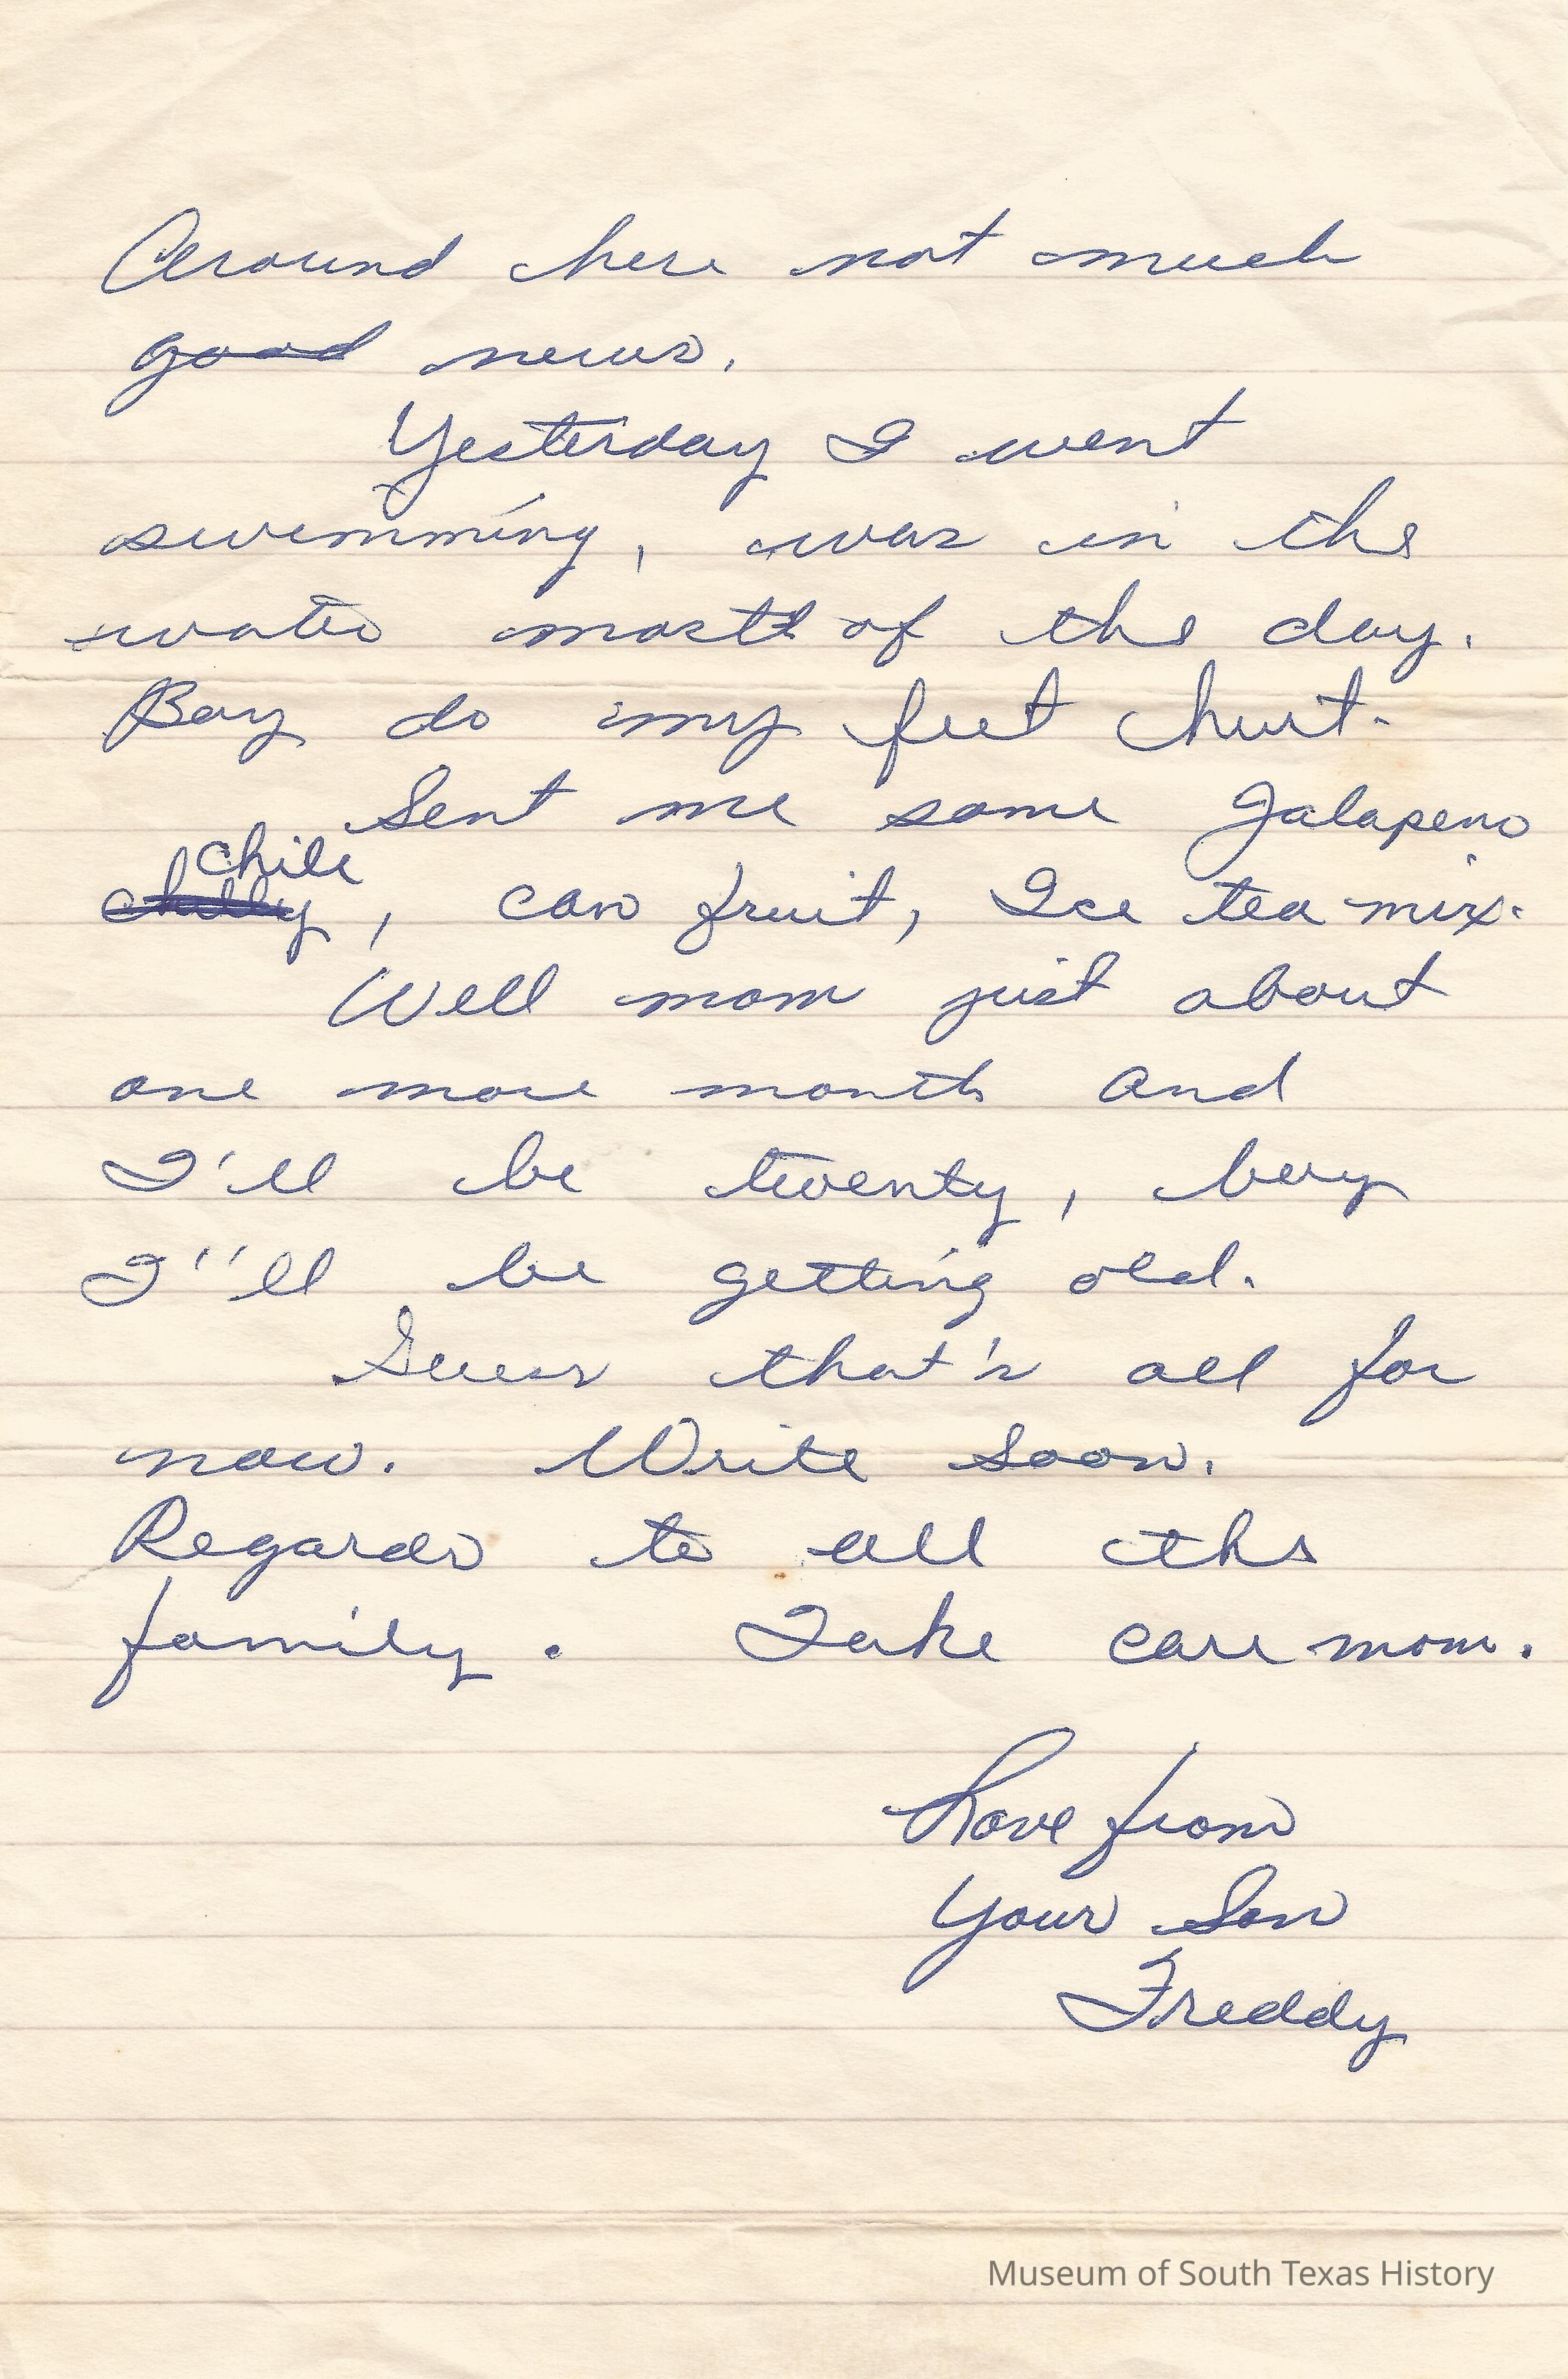 Around here not much
good news.
Yesterday I went
swimming, was in the
water most of the day.
Boy do my feet hurt.
Sent me some Jalapeno
chili
chilly, can fruit, Ice tea mix.
Well mom just about
one more month and
I'll be twenty, boy
I''ll be getting old.
Guess that's all for
now. Write soon.
Regards to all the
family. Take care mom.
Love from
Your Son
Freddy
Museum of South Texas History